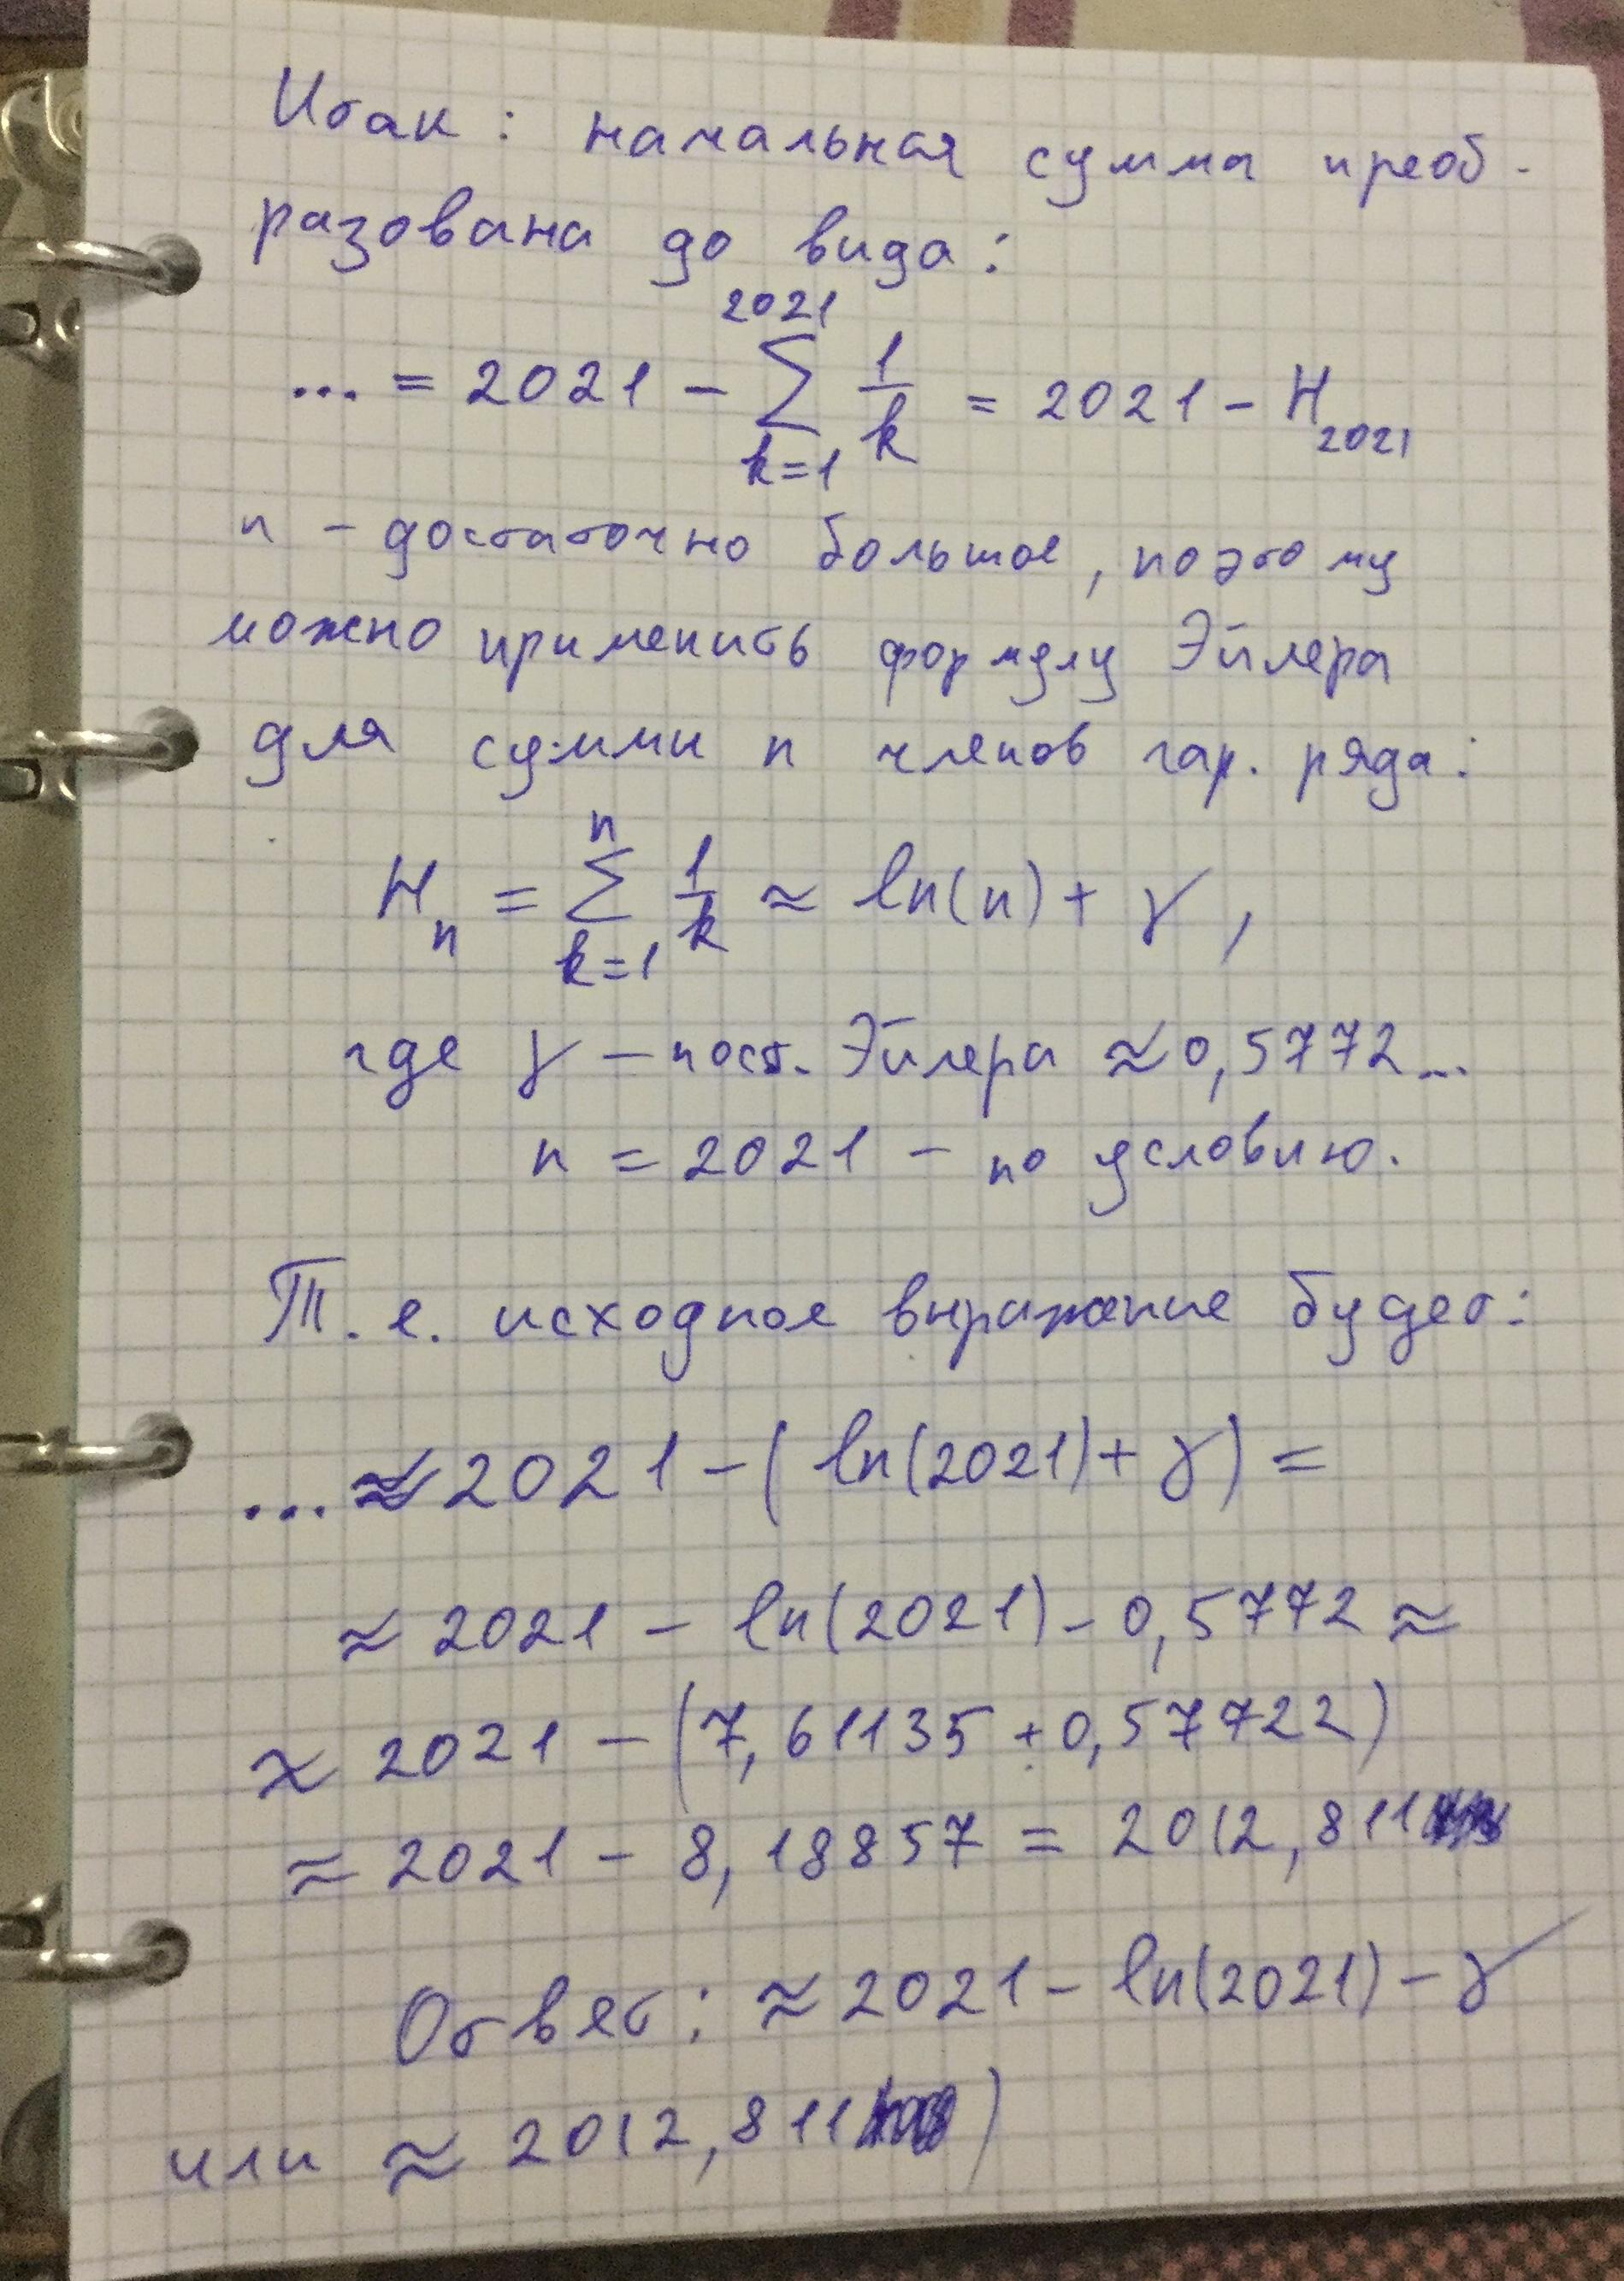 Итак: начальная сумма преоб-
разована до вида:
... = 2021 - \sum_{k=1}^{2021} \frac{1}{k} = 2021 - H_{2021}
n - достаточно большое, поэтому
можно применить формулу Эйлера
для суммы n членов гар. ряда:
H_n = \sum_{k=1}^{n} \frac{1}{k} ≈ ln(n) + γ,
где γ - пост. Эйлера ≈ 0,5772...
n = 2021 - по условию.
Т.е. исходное выражение будет:
... ≈ 2021 - (ln(2021) + γ) =
≈ 2021 - ln(2021) - 0,5772 ≈
≈ 2021 - (7,61135 + 0,57722)
≈ 2021 - 8,18857 = 2012,811
Ответ: ≈ 2021 - ln(2021) - γ
или ≈ 2012,811)